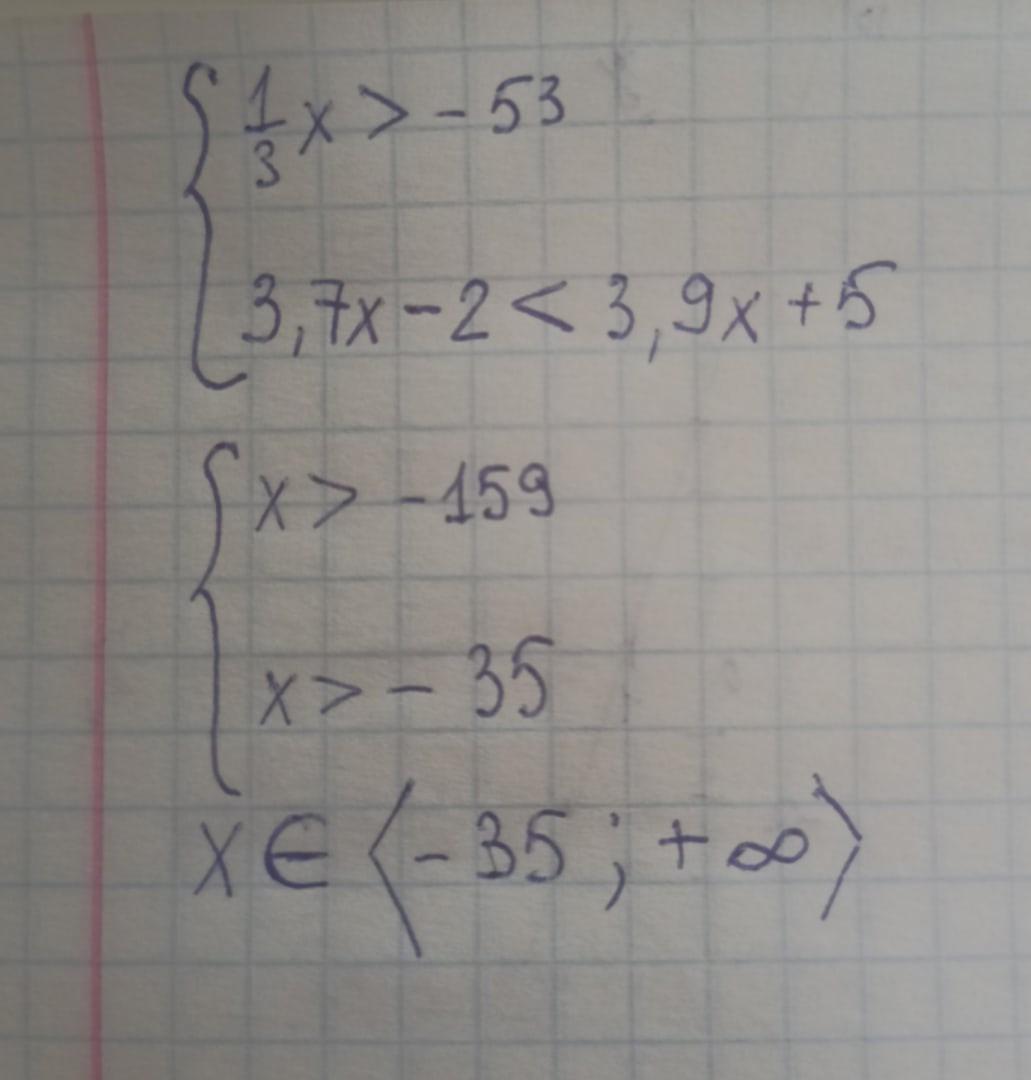 { 1/3 x > - 53
3,7x - 2 < 3,9x + 5
{ x > - 159
x > - 35
x ∈ ⟨- 35 ; + ∞⟩